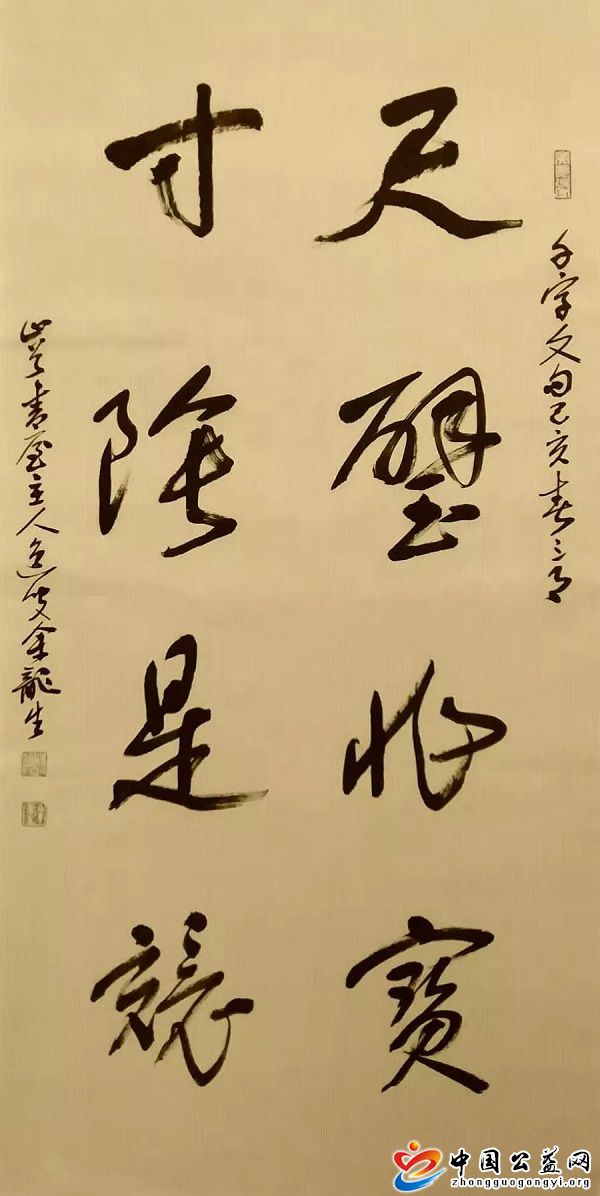 千字文句己亥春三月
尺璧非寶
寸陰是競
書屋主人逸叟余龍生
中国公益网
zhongguogongyi.org